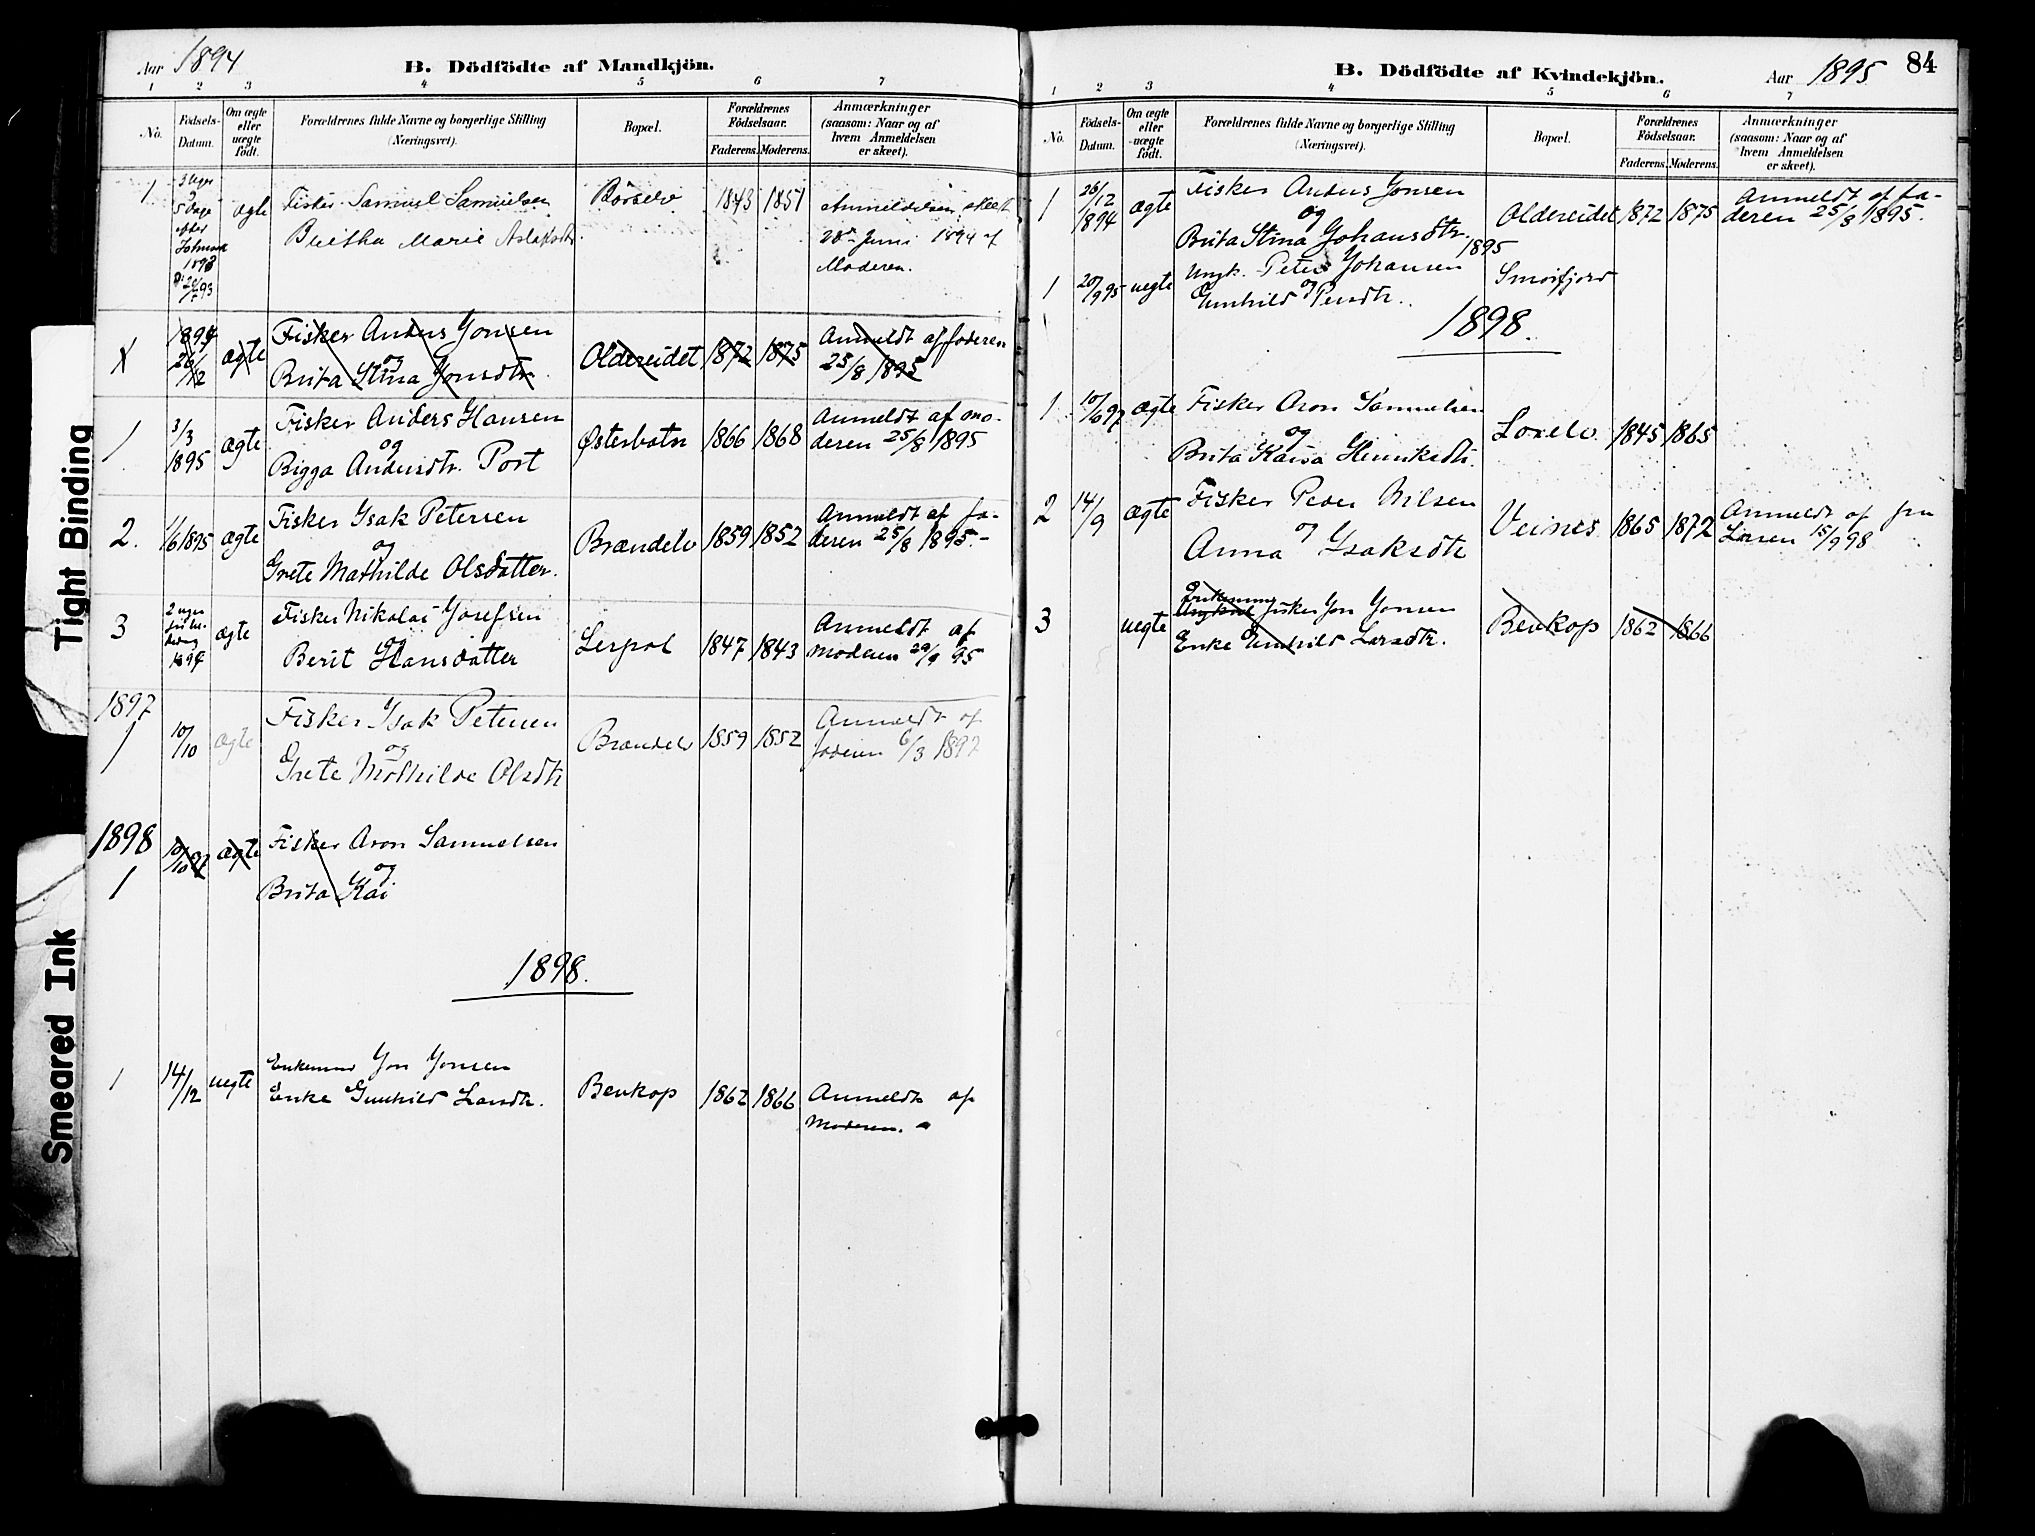 Aar 1894
B. Dödfödte af Mandkjön.
1 2 3 4 5 6 7
No.
Födsels-
Datum.
Om ægte
eller
uægte
født.
Forældrenes fulde Navne og borgerlige Stilling
(Næringsvei).
Bopæl.
Forældrenes
Födselsaar.
Faderens. Moderens.
Anmærkninger
(saasom: Naar og af
hvem Anmeldelsen
er skeet).
1
3 Uger
5 Dage
efter
1893
ægte
Fisker Samuel Samuelsen
Marie Aslaksdtr.
Börselv
1843 1851
Anmeldelsen skeet
Juni 1894 af
Moderen.
1894
26/12
ægte
Fisker Anders Jonsen
og
Brita Stina Jonsdtr.
Oldereidet
1872 1875
Anmeldt af faderen
25/8 1895
1
3/3
1895
ægte
Fisker Anders Hansen
og
Bigga Andersdtr. Port
Østerbotn
1866 1868
Anmeldt af mo-
deren 25/8 1895
2.
1/6 1895
ægte
Fisker Isak Petersen
og
Grete Mathilde Olsdatter.
Brændelv
1859 1852
Anmeldt af fa-
deren 25/8 1895.-
3
2 uger
1894
ægte
Fisker Nikolai Josefsen
og
Berit Hansdatter
Lerpol
1847 1843
Anmeldt af
moderen 29/9 95
1897
1
10/10
ægte
Fisker Isak Petersen
og
Grete Mathilde Olsdtr
Brændelv
1859 1852
Anmeldt af
faderen 6/3 1897
1898
1
10/10 97
ægte
Fisker Aron Samuelsen
og
Brita Kai
1898.
1
14/12
uegte
Enkemand Jon Jonsen
Enke Gunhild Larsdtr.
Benkop
1862 1866
Anmeldt af
Moderen.
B. Dödfödte af Kvindekjön.
Aar 1895
84
1 2 3 4 5 6 7
No.
Födsels-
Datum.
Om ægte
eller
uægte
födt.
Forældrenes fulde Navne og borgerlige Stilling
(Næringsvei).
Bopæl.
Forældrenes
Födselsaar.
Faderens. Moderens.
Anmærkninger
(saasom: Naar og af
hvem Anmeldelsen
er skeet).
1
26/12
1894
ægte
Fisker Anders Jonsen
og
Brita Stina Johansdtr.
Oldereidet
1872 1875
Anmeldt af fa-
deren 25/8 1895.
1895
1
20/9 95
uegte
Ungk. Peter Johansen
og
Gunhild Persdtr.
Smörfjord
1898.
1
10/10 97
ægte
Fisker Aron Samuelsen
og
Brita Kaisa Henriksdtr.
Laxelv
1845 1865
2
14/9
ægte
Fisker Peder Nilsen
og
Anna Isaksdtr
Veines
1865 1872
Anmeldt af fru
15/9 98
3
uegte
Enkemand
Ungkarl fisker Jon Jonsen
Enke Gunhild Larsdtr.
Benkop
1862 1866
Tight Binding
Smeared Ink